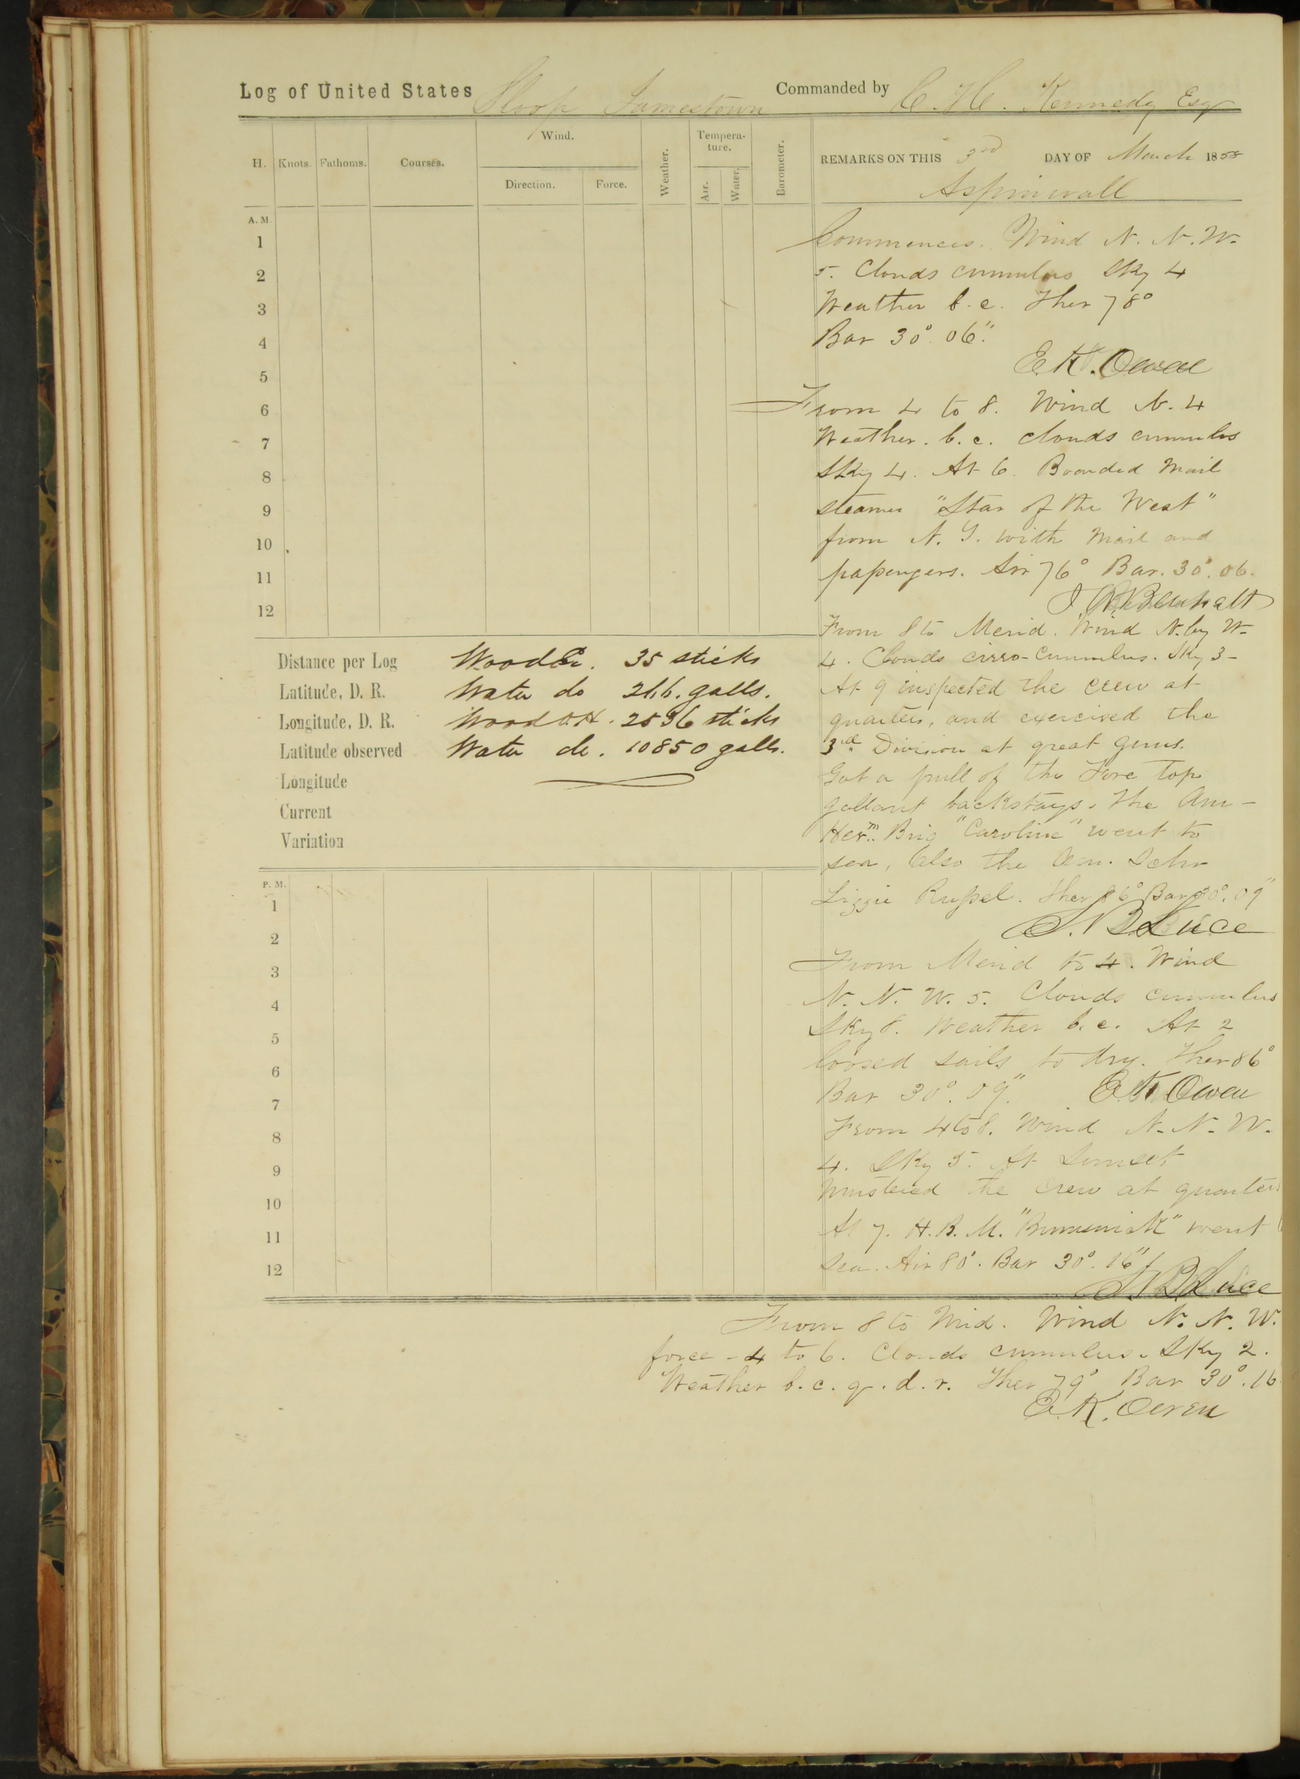 Log of United States Sloop Jamestown Commanded by C. H. Kennedy Esqr
H. Knots. Fathoms. Courses. Wind. Direction. Force. Weather. Tempera-ture. Air. Water. Barometer.
REMARKS ON THIS 3rd DAY OF March 1858
Aspinwall
A.M.
1
2
3
4
5
6
7
8
9
10
11
12
Commences. Wind N. N. W.
5. Clouds cumulus Sky 4
Weather b. c. Ther 78°
Bar 30°. 06".
E. K. Owen
From 4 to 8. Wind N. 4
Weather. b. c. clouds cumulus
Sky 4. At 6. Boarded Mail
steamer "Star of the West"
from N. Y. with Mail and
passengers. Air 76° Bar. 30°. 06.
From 8 to Merid. Wind N. by W.
4. Clouds cirro-cumulus. Sky 3-
At 9 inspected the crew at
quarters, and exercised the
3rd. Division at great guns.
Got a pull of the Fore top
gallant backstays. The Am-
Herm. Brig "Caroline" went to
sea, also the Am. Schr
Lizzie Russel. Ther 86° Bar 30°. 09"
S. B. Luce
Distance per Log
Latitude, D. R.
Longitude, D. R.
Latitude observed
Longitude
Current
Variation
Wood Ex. 35 sticks
Water do 266. galls.
Wood O.H. 2536 sticks
Water do. 10850 galls.
P. M.
1
2
3
4
5
6
7
8
9
10
11
12
From Merid to 4. Wind
N. N. W. 5. Clouds cumulus
Sky 8. Weather b. c. At 2
loosed sails to dry. Ther 86°
Bar 30°. 09". E. K. Owen
From 4 to 8. Wind N. N. W.
4. Sky 5. At Sunset
mustered the crew at quarters
At 7. H. B. M. "Brunswick" went
sea. Air 80°. Bar 30°. 16"
S. B. Luce
From 8 to Mid. Wind N. N. W.
force - 4 to 6. Clouds cumulus. Sky 2.
Weather b. c. q. d. r. Ther 79° Bar 30°. 16
E. K. Owen